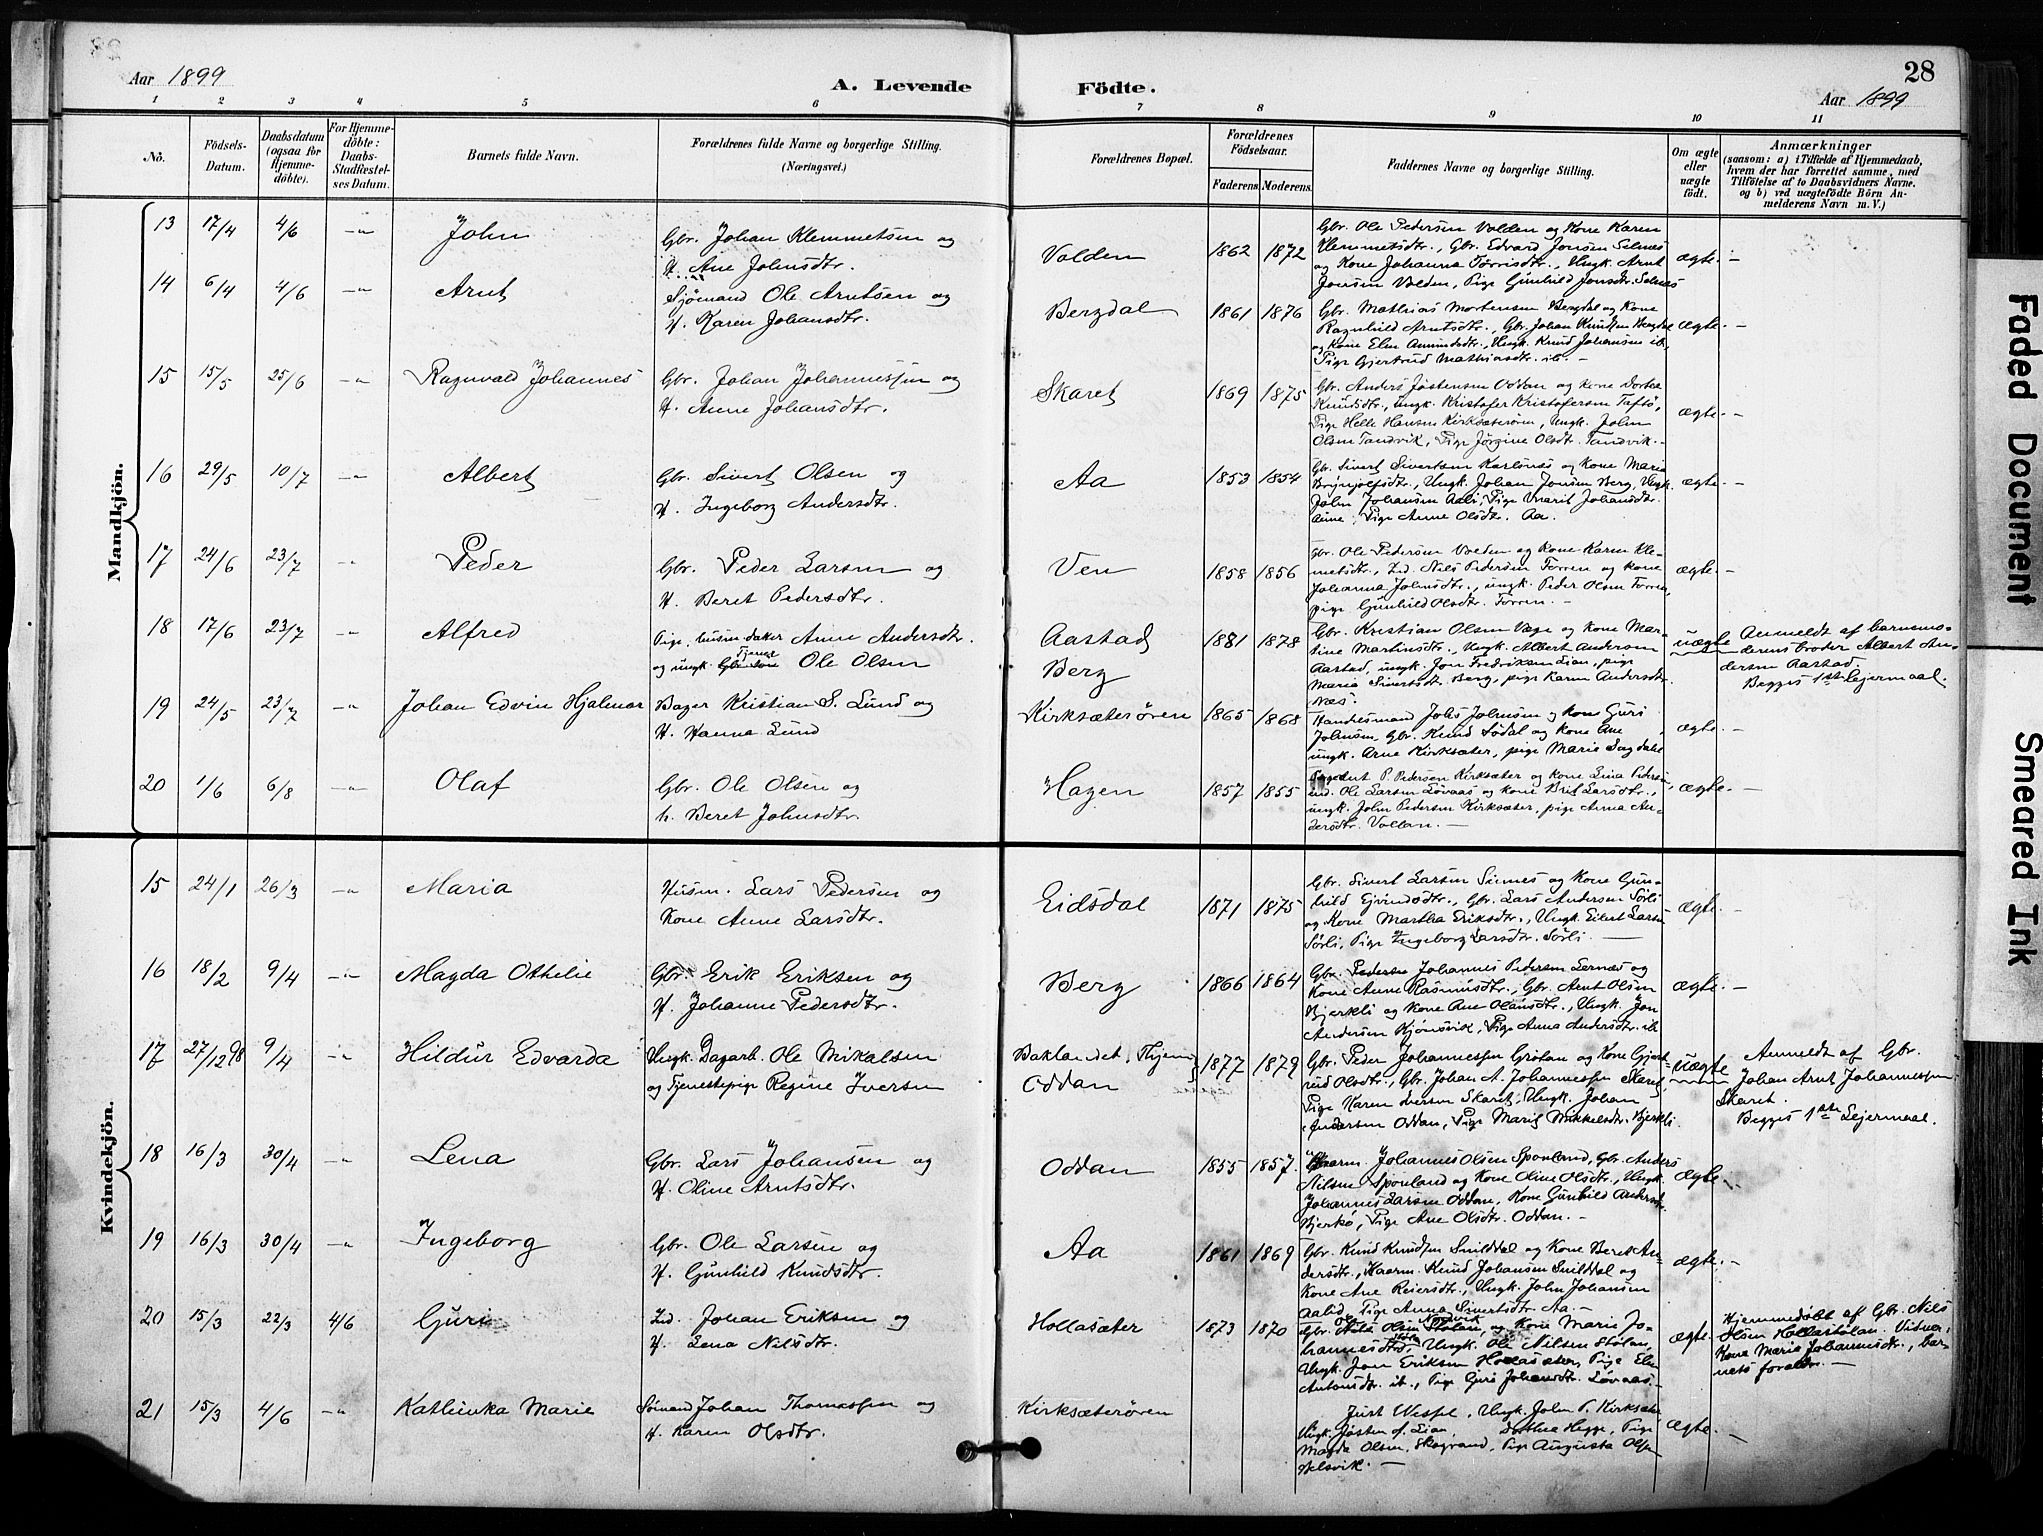 28
Aar 1899
A. Levende
Födte.
Aar 1899
1 2 3 4 5 6 7 8 9 10 11
No.
Födsels-Datum.
Daabsdatum (ogsaa for Hjemme-döbte).
For Hjemme-döbte: Daabs-Stadfæstel-ses Datum.
Barnets fulde Navn.
Forældrenes fulde Navne og borgerlige Stilling.
(Næringsvei.)
Forældrenes Bopæl.
Forældrenes Födselsaar.
Faderens. Moderens.
Faddernes Navne og borgerlige Stilling.
Om ægte eller uægte födt.
Anmærkninger
(saasom: a) i Tilfælde af Hjemmedaab,
hvem der har forrettet samme, med
Tilföielse af to Daabsvidners Navne.
og b) ved uægtefödte Börn An-
melderens Navn m. V.)
Mandkjön.
13 17/4 4/6 -"- John Gbr. Johan Klemmetsen og
H. Ane Johnsdtr. Volden 1862 1872 ægte. -
Gbr. Ole Pedersen Volden og Kone Karen
Klemmetsdtr., Gbr. Edvard Jonsen Selnæs
og Kone Johanna Tørrisdtr., Ungk. Arnt
Jonsen Volden, Pige Gunhild Jonsdtr. Selnæs
14 6/4 4/6 -"- Arnt Sjömand Ole Arntsen og
H. Karen Johansdtr. Bergdal 1861 1876 ægte. -
Gbr. Mathias Mortensen Bergdal og Kone
Ragnhild Arntsdtr., Gbr. Johan Knudsen
og Kone Elen Amundsdtr., Ungk. Knud Johansen ib.,
Pige Gjertrud Mathiasdtr. ib. -
15 15/5 25/6 -"- Ragnvald Johannes Gbr. Johan Johannessen og
H. Anne Johansdtr. Skaret 1869 1875 ægte. -
Gbr. Anders Jøstensen Oddan og Kone Dortea
Knudsdtr., Ungk. Kristofer Kristofersen Taftø,
Pige Helle Hansen Kirksæterøren, Ungk. John
Olsen Tandvik, Pige Jørgine Olsdt. Tandvik. -
16 29/5 10/7 -"- Albert Gbr. Sivert Olsen og
H. Ingeborg Andersdtr. Aa 1853 1854 ægte. -
Gbr. Sivert Sivertsen Karlsnes og Kone Marie
Brynjolfsdtr., Ungk. Johan Jonsen Berg, Ungk.
John Johansen Aali, Pige Marit Johansdtr.
Aune, Pige Anne Olsdt. Aa.
17 24/6 23/7 -"- Peder Gbr. Peder Larsen og
H. Beret Pedersdtr. Ven 1858 1856 ægte. -
Gbr. Ole Pedersen Volden og Kone Karen Kle-
metsdtr., Ild. Nils Pedersen Torren og Kone
Johanna Johnsdtr., ungk. Peder Olsen Torren,
pige Gunhild Olsdtr. Torren. -
18 17/6 23/7 -"- Alfred Pige, husm.datter Anne Andersdtr.
og ungk. Tjenst Ole Olsen Aastad
Berg 1881 1878 uægte
Gbr. Kristian Olsen Vage og Kone Mar-
tine Martinsdtr., Ungk. Albert Andersen
Aastad, ungk. Jon Fredriksen Lian, pige
Maria Sivertsdt. Berg, pige Karen Andersdt.
Næs.
Anmeldt af barnemo-
derens broder Albert An-
dersen Aastad.
Begges 1ste Leiermaal.
19 24/5 23/7 -"- Johan Edvin Hjalmar Bager Kristian S. Lund og
H. Hanna Lund Kirksæterören 1865 1868 ægte. -
Handelsmand Johs Johnsen og Kone Guri
Johnsen, Gbr. Knud Sødal og Kone Ane
ungk. Arne Kirksæter, pige Marie
20 1/6 6/8 -"- Olaf Gbr. Ole Olsen og
h. Beret Johnsdtr. Hagen 1857 1855 ægte. -
P. Pedersen Kirksæter og Kone Lina Pedersen
Ole Larsen Løvaas og Kone Brit Larsdtr.,
ungk. John Pedersen Kirksæter, pige Anna An-
dersdtr. Vollan. -
Kvindekjön.
15 24/1 26/3 -"- Maria Husm. Lars Pedersen og
Kone Anne Larsdtr. Eidsdal 1871 1875 ægte. -
Gbr. Sivert Larsen Sinnes og Kone Gun-
hild Eivindsdtr., Gbr. Lars Andersen Sörli
og Kone Martha Eriksdtr., Ungk. Eilert Larsen
Sörli, Pige Ingeborg Larsdtr. Sörli. -
16 18/2 9/4 -"- Magda Othelie Gbr. Erik Eriksen og
H. Johanne Pedersdtr. Berg 1866 1864 ægte. -
Gbr. Pedersen Johannes Pedersen Lernæs og
Kone Anne Rasmusdtr., Gbr. Arnt Olsen
Bjerkli og Kone Ane Olausdtr., Ungk. Jon
Andersen Hjönsvik, Pige Anna Andersdtr. ib
17 27/12 98 9/4 -"- Hildur Edvarda Ungk. Dagarb. Ole Mikalsen
og Tjenestepige Regine Iversen Baklandet, Thjem
Oddan 1877 1879 uægte
Gbr. Peder Johannessen Grötan og Kone Gjert-
rud Olsdtr., Gbr. Johan A. Johannessen Skaret,
Pige Karen Iversen Skaret, Ungk. Johan
Andersen Oddan, Pige Marit Mikkelsdtr. Bjerkli.
Anmeldt af Gbr.
Johan Arnt Johannessen
Skaret.
Begges 1ste Lejermaal.
18 16/3 30/4 -"- Lena Gbr. Lars Johansen og
H. Oline Arntsdtr. Oddan 1855 1857. ægte. -
Johannes Olsen Sponland, Gbr. Anders
Nilsen Sponland og Kone Oline Olsdtr., Ungk.
Johannes Larsen Oddan, Kone Gunhild Andersdt.
Bjerkö, Pige Ane Olsdtr. Oddan. -
19 16/3 30/4 -"- Ingeborg Gbr. Ole Larsen og
H. Gunhild Knudsdtr. Aa 1861 1869 ægte. -
Gbr. Knud Knudsen Snilddal og Kone Beret An-
dersdtr., Kaarm. Knud Johansen Snilddal og
Kone Ane Reiersdtr., Ungk. John Johansen
Aalid, Pige Anna Sivertsdtr. Aa. -
20 15/3 22/3 4/6 Guri Ild. Johan Eriksen og
H. Lena Nilsdtr. Hollasæter 1873 1870 ægte.
Gbr. Nils Olsen Stölan, og Kone Marie Jo-
hannesdtr., Ungk. Ole Nilsen Stölan,
Ungk. Jon Eriksen Hollasæter, Pige Elen
Antonsdt. ib., Pige Guri Johansdt. Lövaas. -
Hjemmedöbt af Gbr. Nils
Olsen Hollastölan. Vidner:
Kone Maria Johannesdtr., bar-
nets forældr. -
21 15/3 4/6 -"- Kathinka Marie Sömand Johan Thomassen og
H. Karen Olsdtr. Kirksæterören ægte. -
Just Wessel, Ungk. John P. Kirksæter,
Ungk. Jøsten J. Lian, Dorthea Hegge, Pige
Magda Olsen, Skogrand, Pige Augusta Olsen
Helsvik. -
Faded Document
Smeared Ink